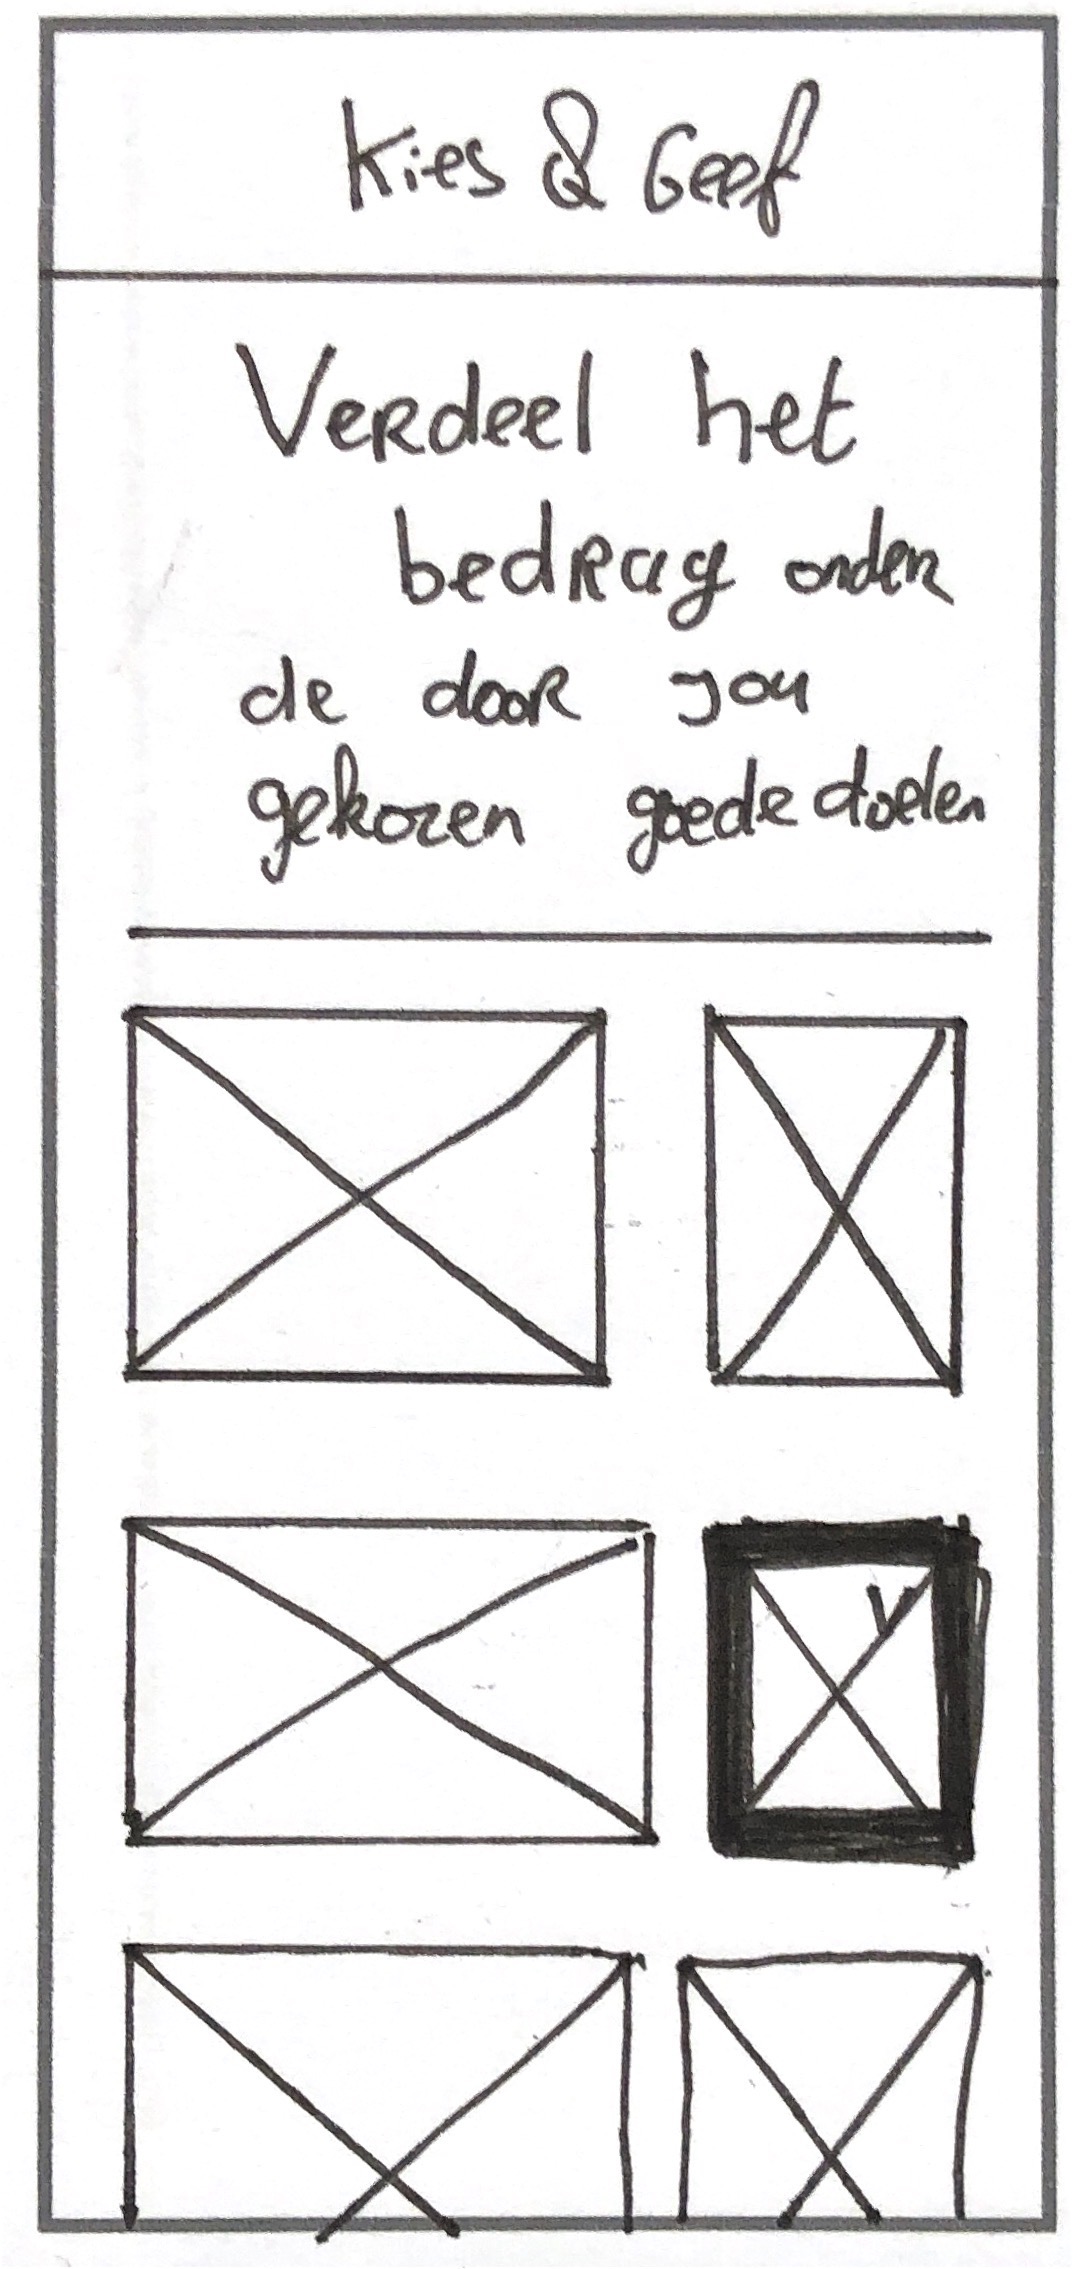 Kies & Geef
Verdeel het
bedrag onder
de door jou
gekozen goede doelen
V